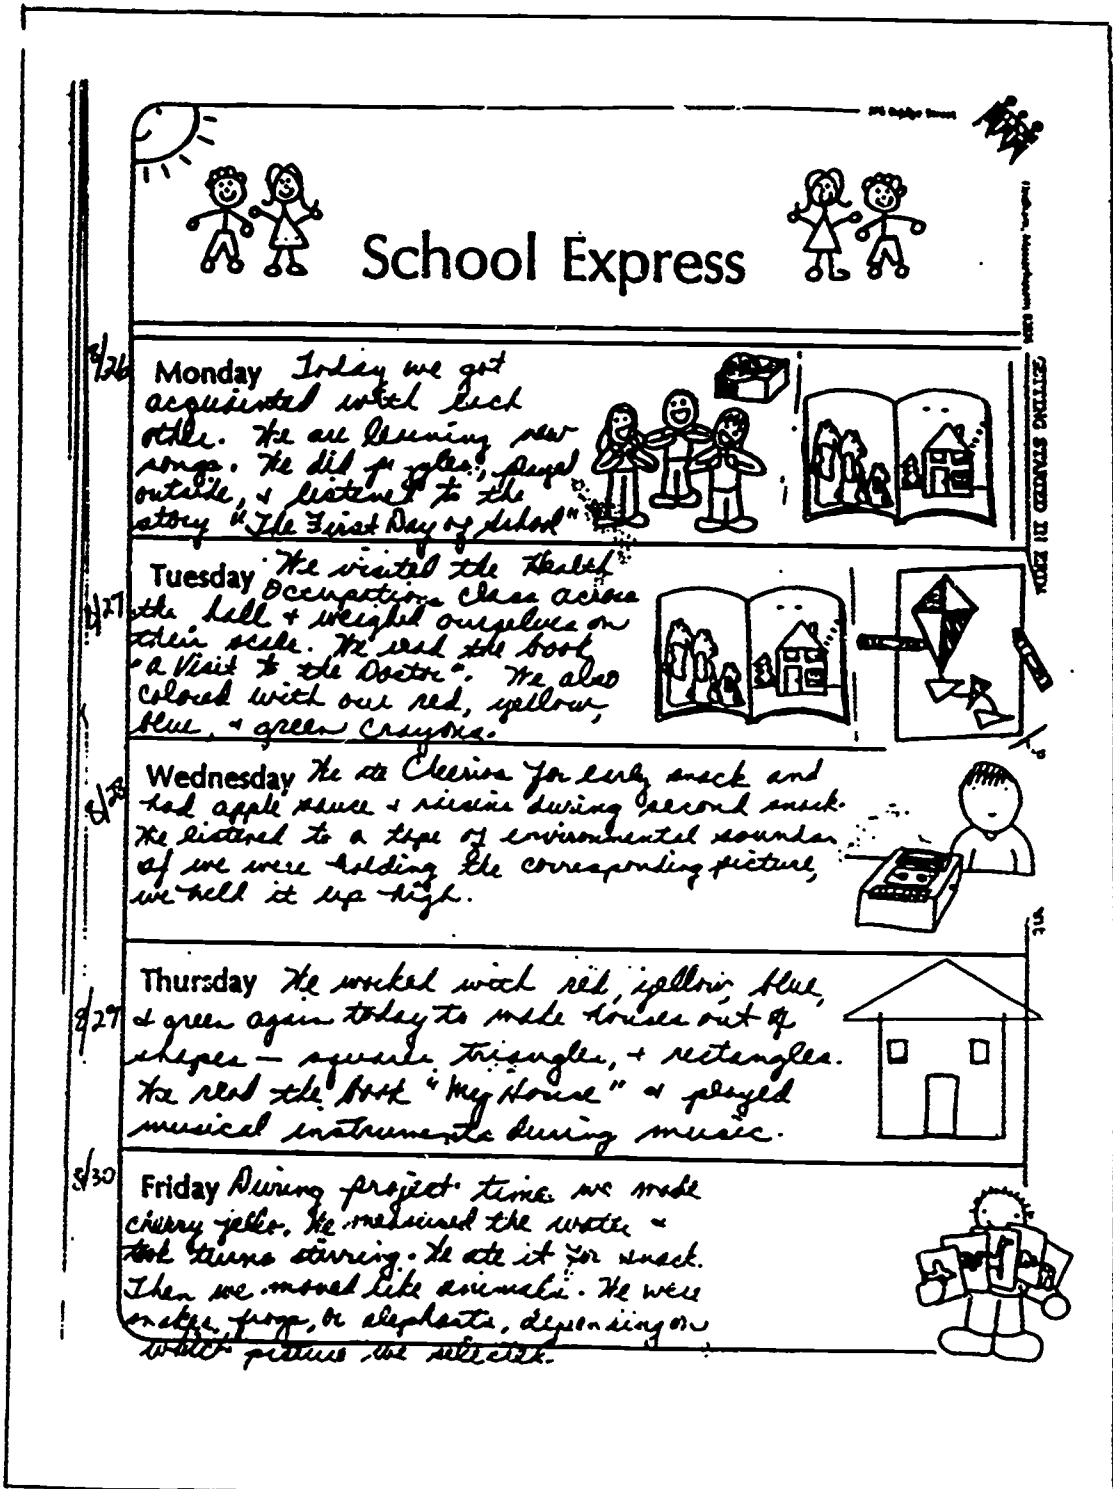 School Express
8/26
Monday Today we got
acquainted with each
other. We are learning new
songs. We did puzzles, played
outside, & listened to the
story "The First Day of School"
GETTING STARTED IN
8/27
Tuesday We visited the Health
Occupations class across
the hall & weighed ourselves on
their scale. We read the book
"A Visit to the Doctor". We also
colored with our red, yellow,
blue, & green crayons.
8/28
Wednesday We ate Cheerios for early snack and
had apple sauce & raisins during second snack.
We listened to a tape of environmental sounds.
If we were holding the corresponding picture,
we held it up high.
8/29
Thursday We worked with red, yellow, blue,
& green again today to make houses out of
shapes — squares, triangles, & rectangles.
We read the book "My House" & played
musical instruments during music.
8/30
Friday During project time we made
cherry jello. We measured the water &
took turns stirring. We ate it for snack.
Then we moved like animals. We were
snakes, frogs, or elephants, depending on
which picture we selected.